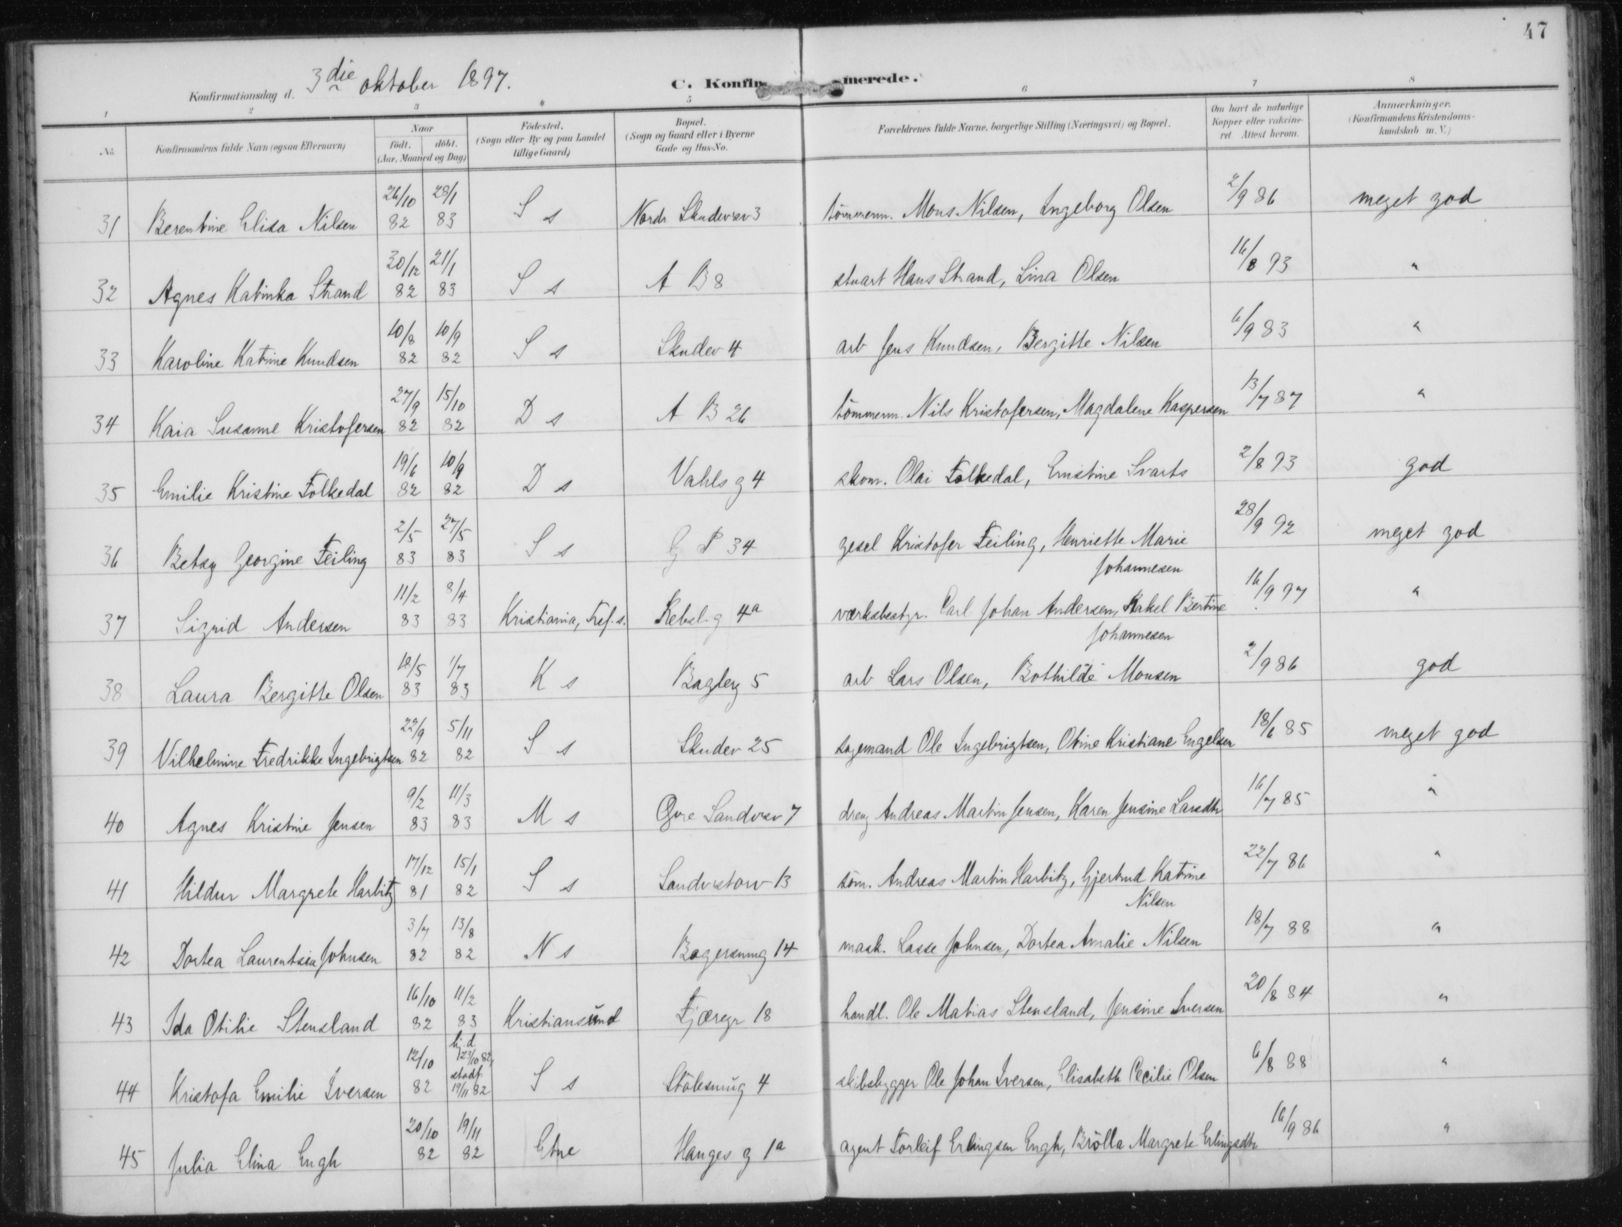 47
Konfirmationsdag d. 3die oktober 1897. C. Konfir merede.
1 2 3 4 5 6 7 8
No. Konfirmandens fulde Navn (ogsaa Efternavn) Naar født. døbt. (Aar, Maaned og Dag) Fødested. (Sogn eller By og paa Landet tillige Gaard) Bopæl. (Sogn og Gaard eller i Byerne Gade og Hus-No. Forældrenes fulde Navne, borgerlige Stilling (Næringsvei) og Bopæl. Om havt de naturlige Kopper eller vaksineret Attest herom. Anmærkninger. (Konfirmandens Kristendomskundskab m. V.)
31 Berentine Elisa Nilsen 26/10 82 28/1 83 S s Nordr Skudevsv 3 tømmerm. Mons Nilsen, Ingeborg Olsen 2/9 86 meget god
32 Agnes Katinka Strand 30/12 82 21/1 83 S s A B 8 stuart Hans Strand, Lina Olsen 16/8 93 "
33 Karoline Katrine Knudsen 10/8 82 10/9 82 S s Skudev 4 arb Jens Knudsen, Bergitte Nilsen 6/9 83 "
34 Kaia Susanne Kristofersen 27/9 82 15/10 82 D s A B 26 tømmerm. Nils Kristofersen, Magdalene Kaspersen 13/7 87 "
35 Emilie Kristine Folkedal 19/6 82 10/9 82 D s Vahls g 4 skom. Olai Folkedal, Ernstine Svarts 2/8 93 god
36 Betsy Georgine Feiling 2/5 83 27/5 83 S s G P 34 gesel Kristofer Feiling, Henriette Marie Johannesen 28/9 92 meget god
37 Sigrid Andersen 11/2 83 8/4 83 Kristiania, Tref. s. Rebsl. g 4a værksbestyr. Carl Johan Andersen, Rakel Bertine Johannesen 16/9 97 "
38 Laura Bergitte Olsen 18/5 83 1/7 83 K s Bagleg 5 arb Lars Olsen, Bothilde Monsen 2/9 86 god
39 Vilhelmine Fredrikke Ingebrigtsen 22/9 82 5/11 82 S s Skudev 25 sagemand Ole Ingebrigtsen, Oline Kristiane Engelsen 18/6 85 meget god
40 Agnes Kristine Jensen 9/2 83 11/3 83 M s Øvre Sandvsv 7 dreng Andreas Martin Jensen, Karen Jensine Larsdtr 16/7 85 "
41 Hildur Margrete Harbitz 17/12 81 15/1 82 S s Sandvstorv 13 tøm. Andreas Martin Harbitz, Gjertrud Katrine Nilsen 22/7 86 "
42 Dortea Laurentsea Johnsen 3/7 82 13/8 82 N s Bagersmug 14 mask. Lasse Johnsen, Dortea Amalie Nilsen 18/7 88 "
43 Ida Otilie Stensland 16/10 82 11/2 83 Kristiansund Fjæregr 18 handl. Ole Matias Stensland, Jensine Iversen 20/8 84 "
44 Kristofa Emilie Iversen 12/10 82 hj. d 12/10 82, stadf 19/11 82 S s Stølesmug 4 skibsbygger Ole Johan Iversen, Elisabeth Cecilie Olsen 6/8 88 "
45 Julia Elina Engh 20/10 82 19/11 82 Etne Hauges g 1a agent Torleif Erlingsen Engh, Brølla Margrete Erlingsdtr 16/9 86 "